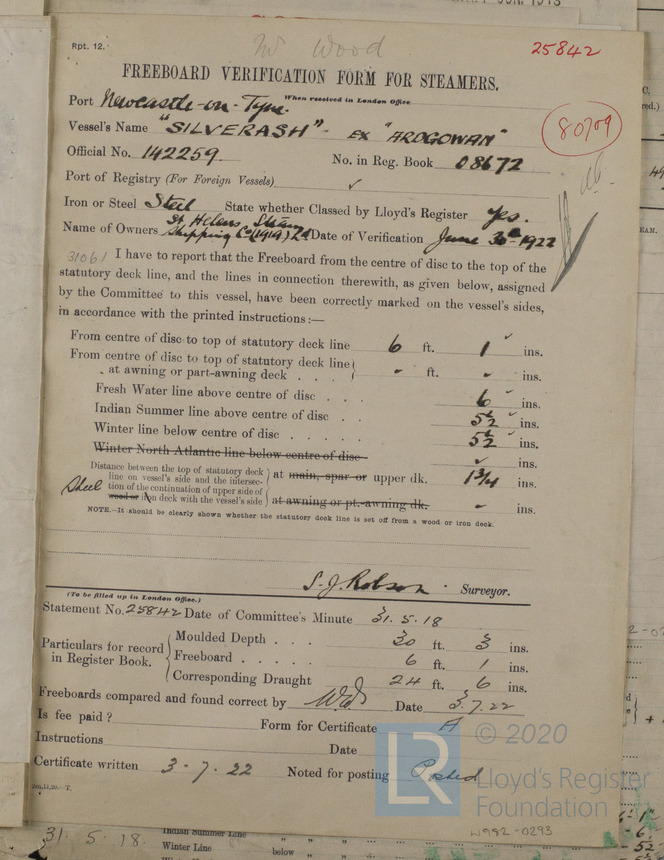 Rpt. 12.
Mr Wood
25842
FREEBOARD VERIFICATION FORM FOR STEAMERS.
Port Newcastle-on-Tyne. When received in London Office
80709
Vessel's Name "SILVERASH" - EX "ARDGOWAN"
Official No. 142259. No. in Reg. Book 08672
Port of Registry (For Foreign Vessels) ✓
Iron or Steel Steel State whether Classed by Lloyd's Register Yes.
Name of Owners St Helens Steam Shipping Co (1919) Ld Date of Verification June 30th 1922
31061 I have to report that the Freeboard from the centre of disc to the top of the
statutory deck line, and the lines in connection therewith, as given below, assigned
by the Committee to this vessel, have been correctly marked on the vessel's sides,
in accordance with the printed instructions:—
From centre of disc to top of statutory deck line 6 ft. 1 ins.
From centre of disc to top of statutory deck line
at awning or part-awning deck . . . - ft. - ins.
Fresh Water line above centre of disc . . . 6 ins.
Indian Summer line above centre of disc . . 5½ ins.
Winter line below centre of disc . . . . . 5½ ins.
Winter North Atlantic line below centre of disc ✓ ins.
Distance between the top of statutory deck
line on vessel's side and the intersec- at main, spar or upper dk. 1¾ ins.
tion of the continuation of upper side of
Steel wood or iron deck with the vessel's side at awning or pt.-awning dk. - ins.
NOTE.—It should be clearly shown whether the statutory deck line is set off from a wood or iron deck.
S. J. Robson Surveyor.
(To be filled up in London Office.)
Statement No. 25842 Date of Committee's Minute 31.5.18
Particulars for record
in Register Book.
Moulded Depth . . . 30 ft. 3 ins.
Freeboard . . . . . 6 ft. 1 ins.
Corresponding Draught 24 ft. 6 ins.
Freeboards compared and found correct by Date 3.7.22
Is fee paid? Form for Certificate A
Instructions Date
Certificate written 3-7.22 Noted for posting Posted
LR © 2020
Lloyd's Register
Foundation
W982-0293
31.5.18.
Indian Summer Line
Winter Line below